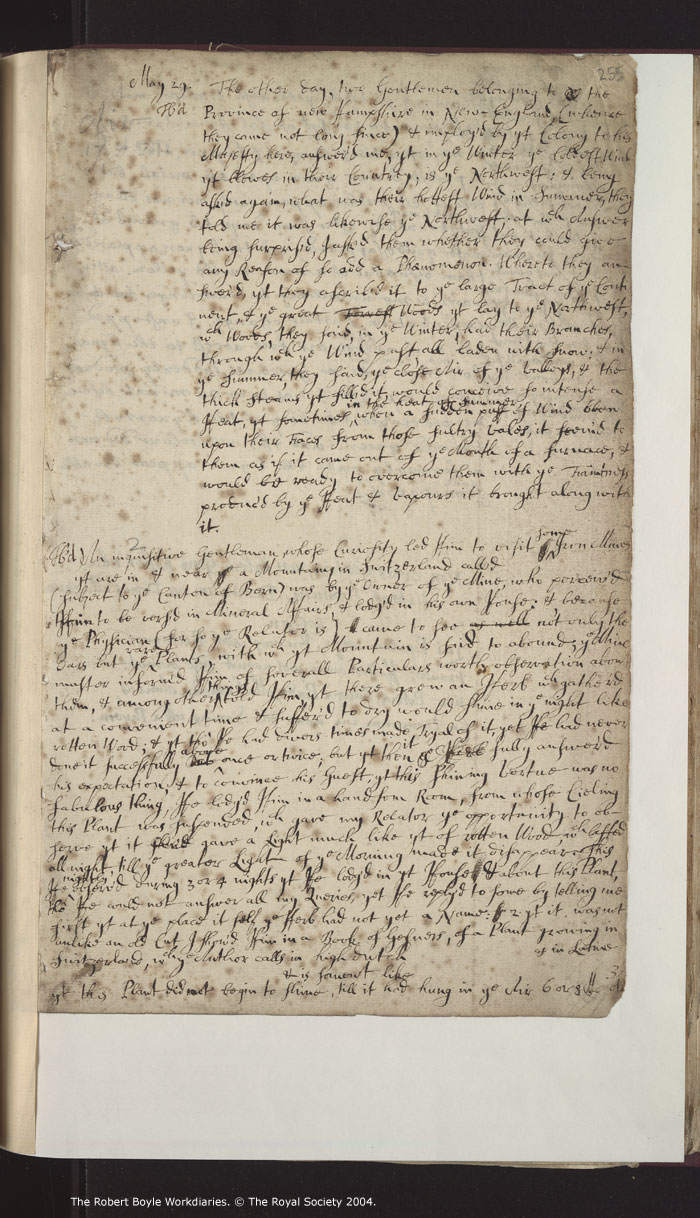 255
May 29. The other day, two Gentlemen belonging to the
Tb'd Province of new Hampshire in New-England, (whence
they came not long since) & imploy'd by yt Colony to his
Majesty here, answer'd me, yt in ye Winter ye coldest Wind
yt blowes in their Country, is ye Northwest: & being
askd again, what was their hottest Wind in Summer, they
told me it was likewise ye Northwest: at wch Answer
being surpris'd, I askd them whether they could give
any Reason of so odd a Phænomenon. Whereto they an
swerd, yt they ascrib'd it to ye large Tract of ye Conti
nent, & ye great Forrest Woods yt lay to ye Northwest,
wch Woods, they said, in ye Winter, had their Branches,
through wch ye Wind past, all laden with snow; & in
ye Summer, they said, ye close Air of ye Valleys, & the
thick steams yt fill'd it, would conceive so intense a
in the heat of Summer
Heat, yt sometimes, when a sudden puff of Wind blew
upon their Faces from those sultry Vales, it seem'd to
them as if it came out of ye Mouth of a furnace, &
would be ready to overcome them with ye Faintness
produc'd by ye Heat & Vapours it brought along with
it.
Tb'd An inquisitive Gentleman, whose Curiosity led Him to visit some Iron Mines
yt are in & near a Mountain in Switzerland called
(subject to ye Canton of Bern) was by ye Owner of ye Mine, who perceiv'd
Him to be vers'd in Mineral Affairs, & lodg'd in his own House: & because
ye Physician (for so ye Relator is) came to see as well not only the
Oars but ye rare Plants, with wch yt Mountain is said to abound, ye Mine
master inform'd Him of severall Particulars worth observation about
them, & among other things told Him, yt there grew an Herb wch gather'd
at a convenient time & suffer'd to dry would shine in ye night like
rotten Wood; & yt tho He had divers times made Tryal of it, yet He had never
done it successfully above once or twice, but yt then it fully answer'd
his expectation, & to convince his Guest yt this shining Vertue was no
fabulous thing, He lodg'd Him in a handsom Room, from whose Cieling
this Plant was suspended, wch gave my Relator ye opportunity to ob
serve yt it gave a Light much like yt of rotten Wood wch lasted
all night, till ye greater Light of ye Morning made it disappear: this
He observ'd during 3 or 4 nights yt He lodg'd in yt House & about this Plant,
tho He could not answer all my Queries, yet He reply'd to some by telling me
first yt at ye place it self ye Herb had not yet a Name: 2 yt it was not
unlike an old Cut I show'd Him in a Book of Gesners, of a Plant growing in
Switzerland, wch ye Author calls in high Dutch & in Latine
& is somewt like
yt this Plant did not begin to shine, till it had hung in ye Air 6 or 8
The Robert Boyle Workdiaries. © The Royal Society 2004.